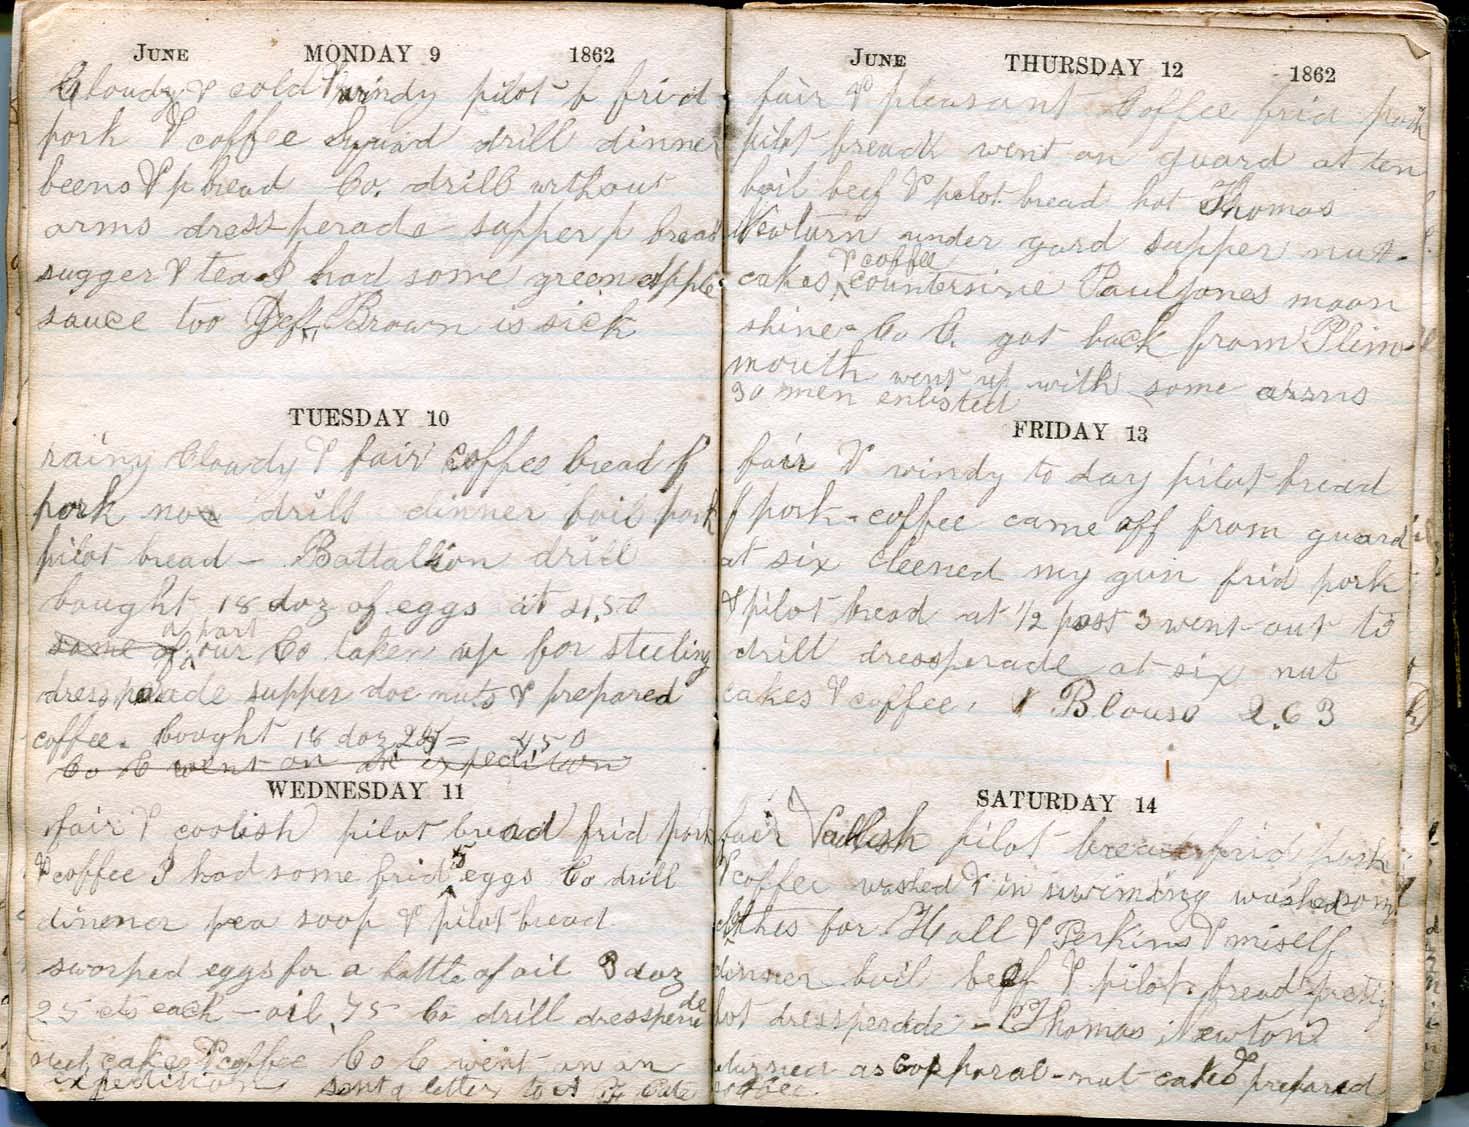 JUNE MONDAY 9 1862
Cloudy & cold & windy pilot b frid
pork & coffee Squad drill dinner
beens & p bread Co. drill without
arms dress-perade supper p bread
sugger & tea I had some green apple
sauce too Jeff Brown is sick
TUESDAY 10
rainy Cloudy & fair coffee bread f
pork no drill dinner boil pork
pilot bread - Battallion drill
bought 18 doz of eggs at 4.50
some of a part our Co taken up for steeling
dressperade supper doe nuts & prepared
coffee. bought 18 doz 25 = 4.50
Co C went on an expedition
WEDNESDAY 11
fair & coolish pilot bread frid pork
& coffee I had some frid 5 eggs Co drill
dinener pea soop & pilot bread
sworped eggs for a bottle of oil 3 doz
25 cts each - oil .75 Co drill dressperade
nut cakes & coffee Co C went on an
expedition sent a letter to
JUNE THURSDAY 12 1862
fair & pleasant Coffee frid pork
pilot breadd went on guard at ten
boil beef & pilot bread hot Thomas
Newturn under gard supper nut-
cakes & coffee countersine Paul Jones moon
shine - Co C. got back from Plim-
mouth went up with some arms
30 men enlisted
FRIDAY 13
fair & windy to day pilot bread
f pork - coffee came off from guard
at six cleened my gun frid pork
& pilot bread at 1/2 past 3 went out to
drill dressperade at six nut
cakes & coffee, 1 Blouse 2.63
SATURDAY 14
fair pilot bread frid pork
& coffee washed & in swiming washed som
clothes for Hall & Perkins & miself
dinner boil beef & pilot bread pretty
hot dressperdde - Thomas Newton
as Corphoral - nut cakes & prepared
coffee